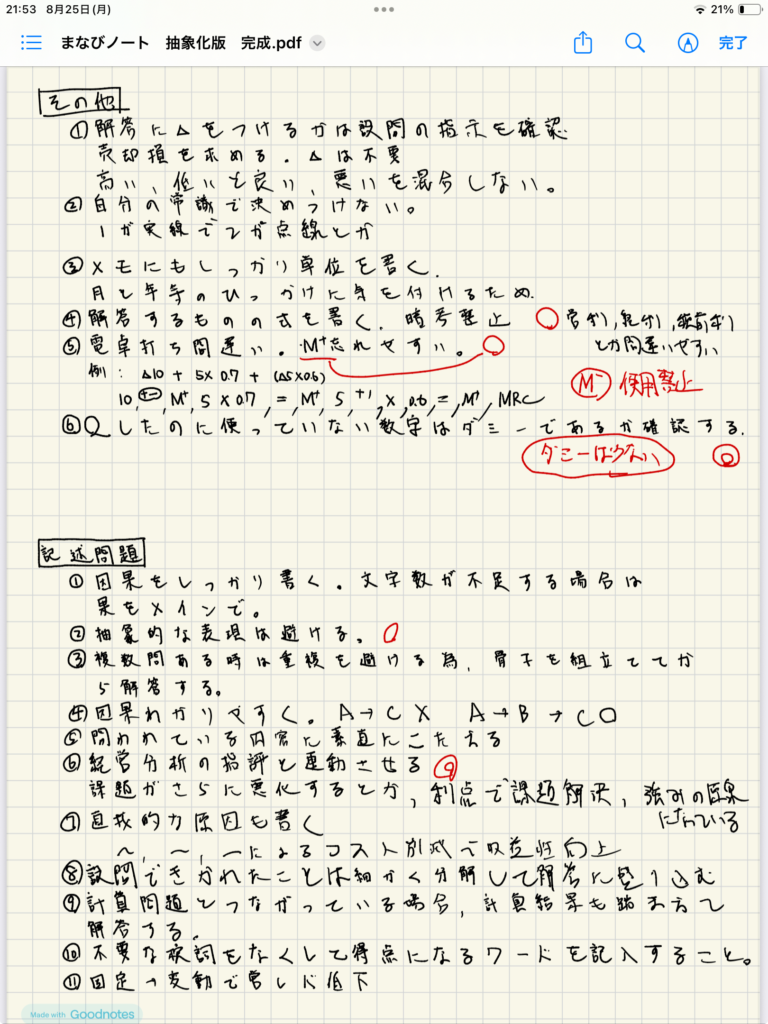 21:53 8月25日(月)
21%
まなびノート 抽象化版 完成.pdf
完了
その他
①解答に△をつけるかは設問の指示を確認
売却損を求める。△は不要
高い、低いと良い、悪いを混合しない。
②自分の常識で決めつけない。
1が実線で2が点線とか
③メモにもしっかり単位を書く.
月と年等のひっかけに気を付けるため.
④解答するものの式を書く.暗算禁止
とか間違いやすい
⑤電卓打ち間違い。M⁺忘れやすい。
例: △10 + 5×0.7 + (△5×0.6)
M⁻ 使用禁止
10, +−, M⁺, 5×0.7, =, M⁺, 5, ×, 0.6, =, M⁺, MRC
⑥Qしたのに使っていない数字はダミーであるか確認する.
ダミーは少ない
記述問題
①因果をしっかり書く。文字数が不足する場合は
果をメインで。
②抽象的な表現は避ける。
③複数問ある時は重複を避ける為、骨子を組立ててか
ら解答する。
④因果わかりやすく。A→C X A→B→C O
⑤問われている内容に素直にこたえる
⑥経営分析の指評と連動させる
課題がさらに悪化するとか,利点で課題解決,強みの因果
になっている
⑦直接的な原因も書く
～、～、～によるコスト削減で収益性向上
⑧設問できかれたことは細かく分解して解答に盛り込む
⑨計算問題とつながっている場合、計算結果も踏まえて
解答する.
⑩不要な歌詞をなくして得点になるワードを記入すること。
⑪固定→変動で営レバ低下
Made with Goodnotes